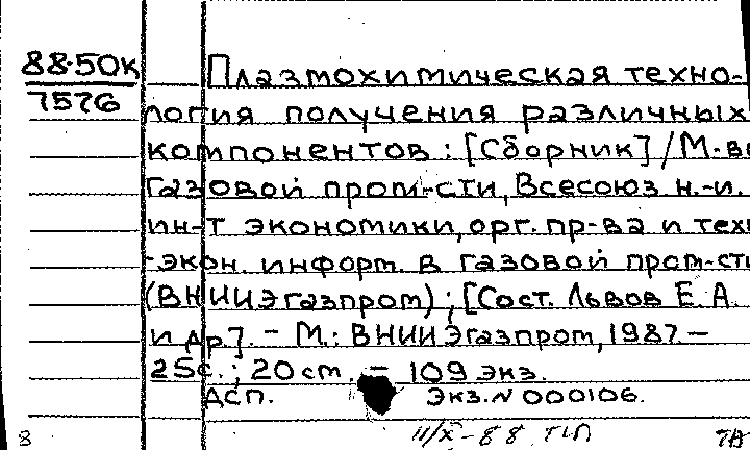 88-50к
7576
Плазмохимическая техно-
логия получения различных
компонентов: [Сборник] / М-во
газовой пром-сти, Всесоюз. н.-и.
ин-т экономики, орг. пр-ва и техн.
-экон. информ. в газовой пром-сти
(ВНИИЭгазпром); [Сост. Львов Е. А.
и др.]. - М.: ВНИИЭгазпром, 1987 -
25с.; 20 cm. - 109 экз.
ДСП. Экз. N 000106.
8 11/X-88